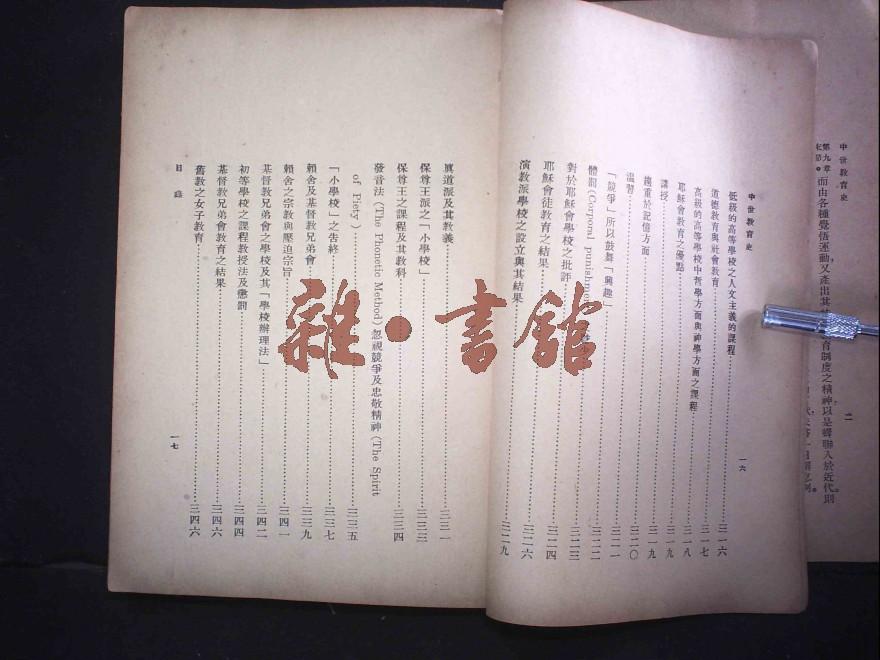 中世教育史
第九章
末節。
而由各種覺悟運動，又產出其
育制度之精神，以是蟬聯入於近代，則
二
中世教育史
一六
低級的高等學校之人文主義的課程……三一六
道德教育與社會教育……三一七
高級的高等學校中哲學方面與神學方面之課程……三一八
耶穌會教育之優點……三一九
講授……三一九
趨重於記憶方面……三二〇
溫習……三二一
「競爭」所以鼓舞「興趣」……三二二
體罰（Corporal punishment
對於耶穌會學校之批評……三二三
耶穌會徒教育之結果……三二四
演教派學校之設立與其結果……三二六
三二九
眞道派及其教義……三三一
保尊王派之「小學校」……三三三
保尊王之課程及其教科……三三四
發音法（The Phonetic Method）忽視競爭及忠敬精神（The Spirit
of Piety）……三三五
「小學校」之告終……三三七
賴舍及基督教兄弟會……三三九
賴舍之宗教與壓迫宗旨……三四一
基督教兄弟會之學校及其「學校辦理法」……三四二
初等學校之課程教授法及懲罰……三四四
基督教兄弟會教育之結果……三四六
舊教之女子教育……三四六
目錄
一七
雜·書館